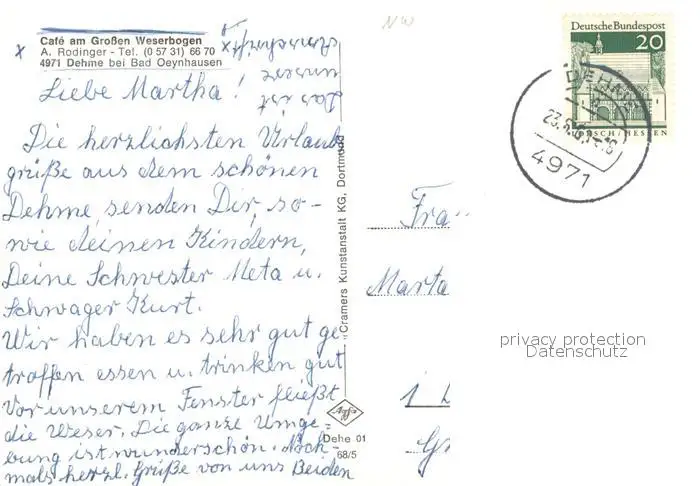 Café am Großen Weserbogen
A. Rodinger - Tel. (0 57 31) 66 70
4971 Dehme bei Bad Oeynhausen
Das ist
unsere
Anschrift
Liebe Martha!
Die herzlichsten Urlaub
grüße aus dem schönen
Dehme, senden Dir, so-
wie deinen Kindern,
Deine Schwester Meta u.
Schwager Kurt.
Wir haben es sehr gut ge
troffen essen u. trinken gut
Vor unserem Fenster fließt
die Weser. Die ganze Umge=
bung ist wunderschön. Noch-
mals herzl. Grüße von uns Beiden
Cramers Kunstanstalt KG, Dortmund
Agfa
Dehe 01
68/5
NW
Deutsche Bundespost
20
LORSCH/HESSEN
4971
Fra
Marta
privacy protection
Datenschutz
1